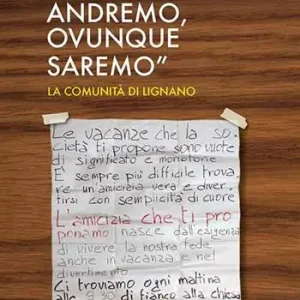 ANDREMO,
OVUNQUE
SAREMO”
LA COMUNITÀ DI LIGNANO
Le vacanze che la so.
cietà ti propone sono vuote
di significato e monotone
È sempre più difficile trova
re un'amicizia vera e diver.
tirsi con semplicità di cuore
L'amicizia che ti pro
poniamo nasce dall'esigenza
di vivere la nostra fede
anche in vacanza e nel
divertimento
Ci troviamo ogni mattina
alle 9.30 di fianco alla chiesa